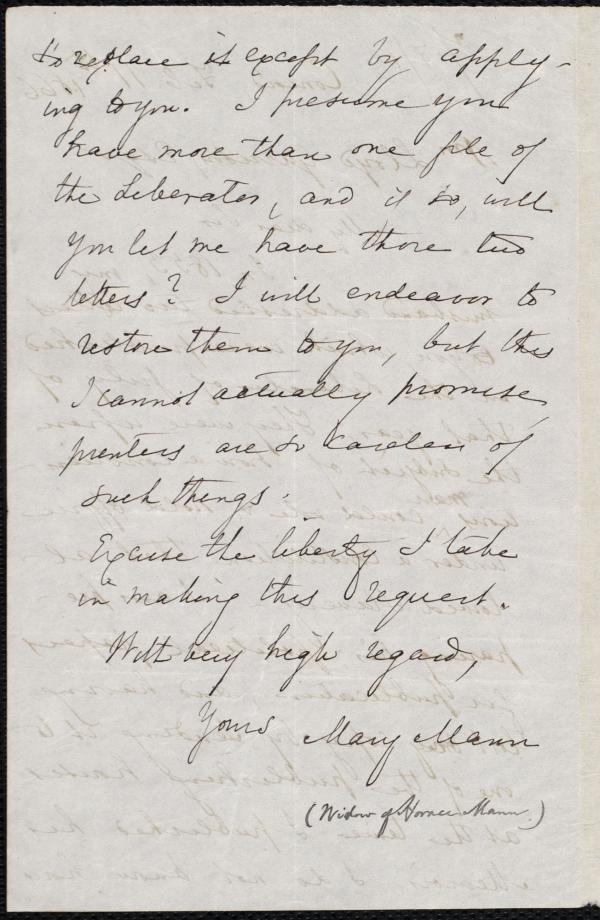 to replace it except by apply-
ing to you. I presume you
have more than one file of
the Liberator, and if so, will
you let me have those two
letters? I will endeavor to
restore them to you, but this
I cannot actually promise,
printers are so careless of
such things.
Excuse the liberty I take
in making this request.
With very high regard,
Yours Mary Mann
(Widow of Horace Mann.)